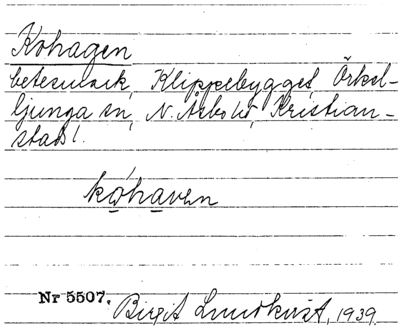 Kohagen
betesmark, Klippebygget, Örkel-
ljunga sn, N. Åsbo hd, Kristian-
stads l.
kóhaven
Nr 5507. Birgit Lundkvist, 1939.